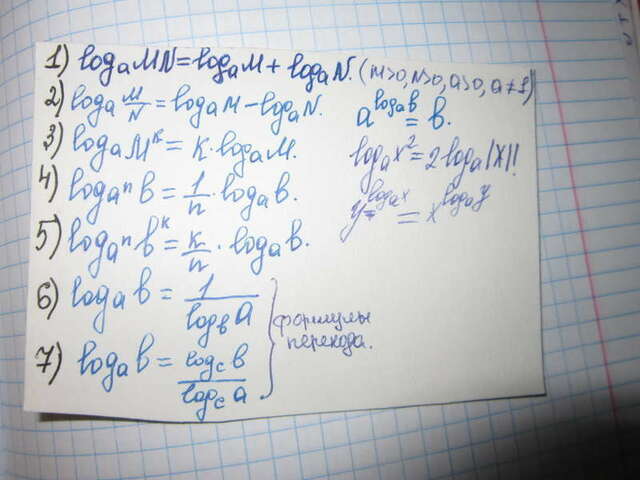 1) logₐMN = logₐM + logₐN. (M>0, N>0, a>0, a≠1)
2) logₐ M/N = logₐM - logₐN.
3) logₐMᵏ = k · logₐM.
4) log_aⁿ b = 1/n · logₐb.
5) log_aⁿ bᵏ = k/n · logₐb.
6) logₐb = 1/log_b a
7) logₐb = log_c b / log_c a
формулы
перехода.
a^(logₐb) = b.
logₐx² = 2logₐ|x|!
y^(logₐx) = x^(logₐy)